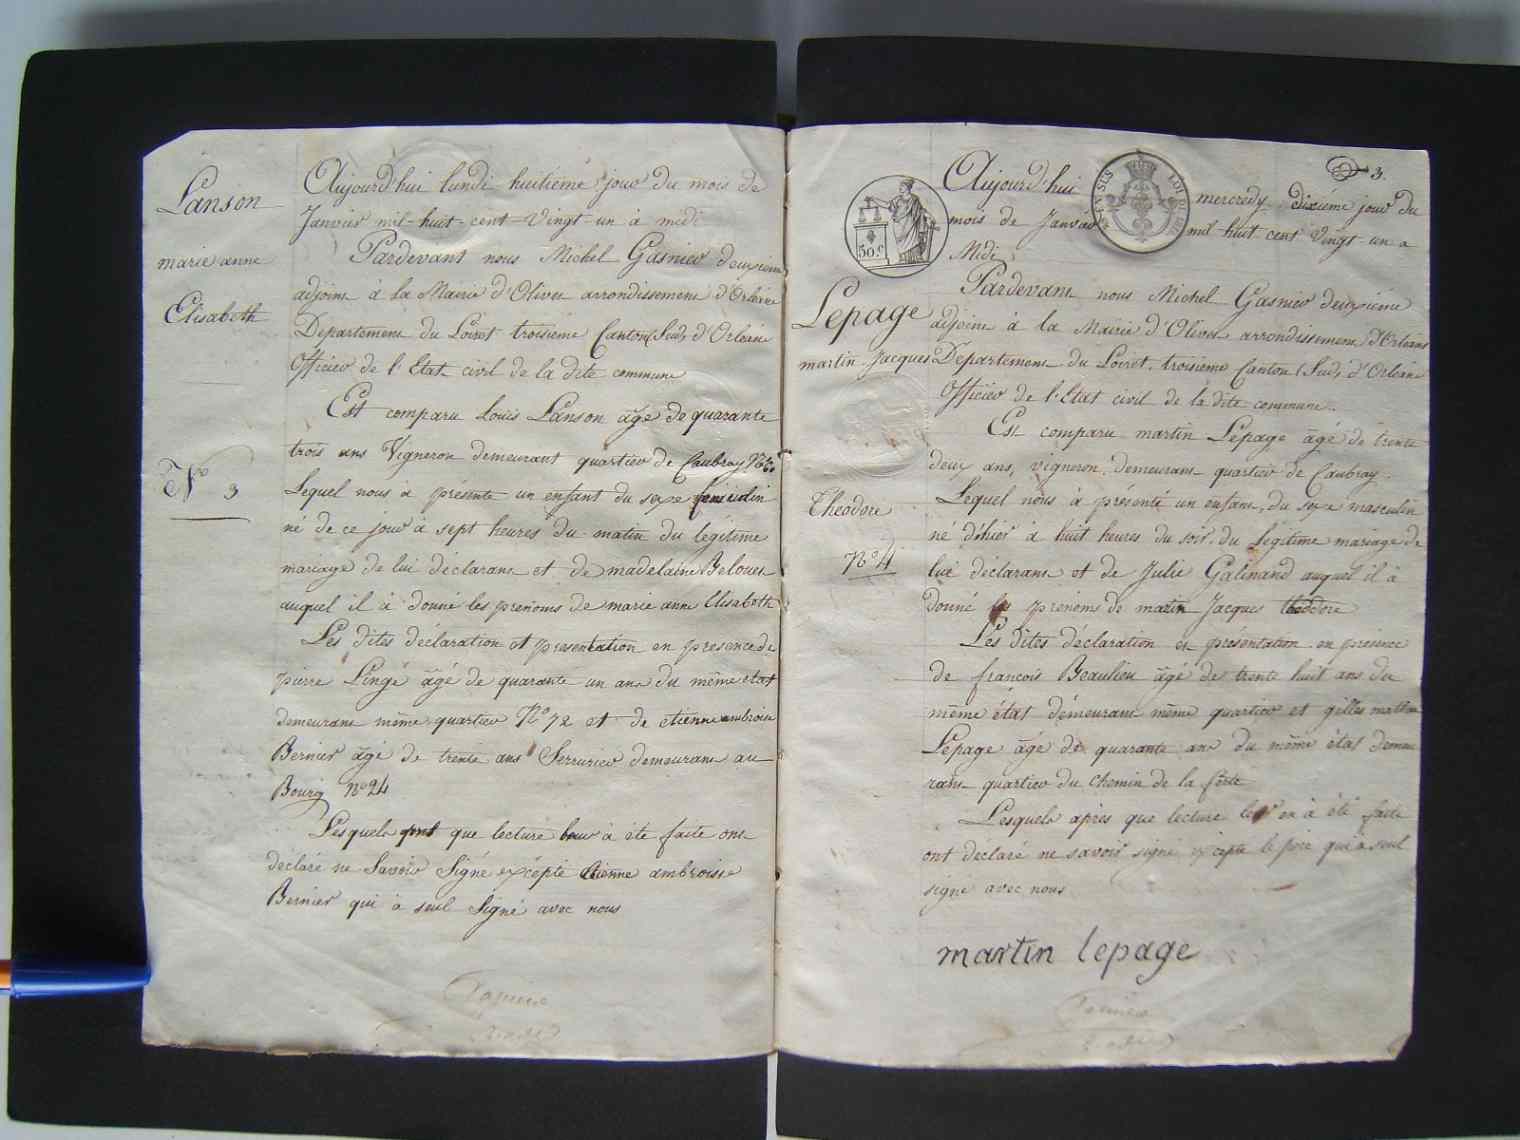 Lanson
marie anne
Elisabeth
N° 3
Aujourd'hui lundi huitième jour du mois de
Janvier mil-huit-cent-Vingt-un à midi
Pardevant nous Michel Gasnier deuxième
adjoint à la Mairie d'Olivet arrondissement d'Orléans
Departement du Loiret troisième Canton (Sud) d'Orléans
Officier de l'Etat civil de la dite commune
Est comparu Louis Lanson âgé de quarante
trois ans Vigneron demeurant quartier de Caubray
Lequel nous à présenté un enfant du sexe féminin
né de ce jour à sept heures du matin du légitime
mariage de lui déclarant et de madelaine Belouet
auquel il à donné les prénoms de marie anne Elisabeth
Les dites déclaration et présentation en presence de
pierre Lingé âgé de quarante un ans du même état
demeurant même quartier N° 72 et de etienne ambroise
Bernier âgé de trente ans Serrurier demeurant au
Bourg n° 24
Lesquels que lecture leur à été faite ont
déclaré ne Savoir Signé excépté etienne ambroise
Bernier qui à seul Signé avec nous
3.
50 c
LOI DU
Lepage
martin Jacques
Theodore
N° 4
Aujourd'hui mercredy dixième jour du
mois de Janvier mil-huit-cent Vingt-un a
Midi
Pardevant nous Michel Gasnier deuxième
adjoint à la Mairie d'Olivet arrondissement d'Orléans
Departement du Loiret troisième Canton (Sud) d'Orléans
Officier de l'Etat civil de la dite commune.
Est comparu martin Lepage âgé de trente
deux ans, vigneron, demeurant quartier de Caubray.
Lequel nous à présenté un enfant du sexe masculin
né d'hier à huit heures du soir du légitime mariage de
lui déclarant et de Julie Galinand auquel il à
donné les prénoms de matin Jacques théodore
Les dites déclaration et présentation en présence
de françois Beaulieu âgé de trente huit ans du
même état demeurant même quartier et gilles
Lepage âgé de quarante ans du même état demeu
rant quartier du chemin de la ferté
Lesquels après que lecture leur en à été faite
ont déclaré ne savoir signé excepté le père qui à seul
signé avec nous
martin lepage